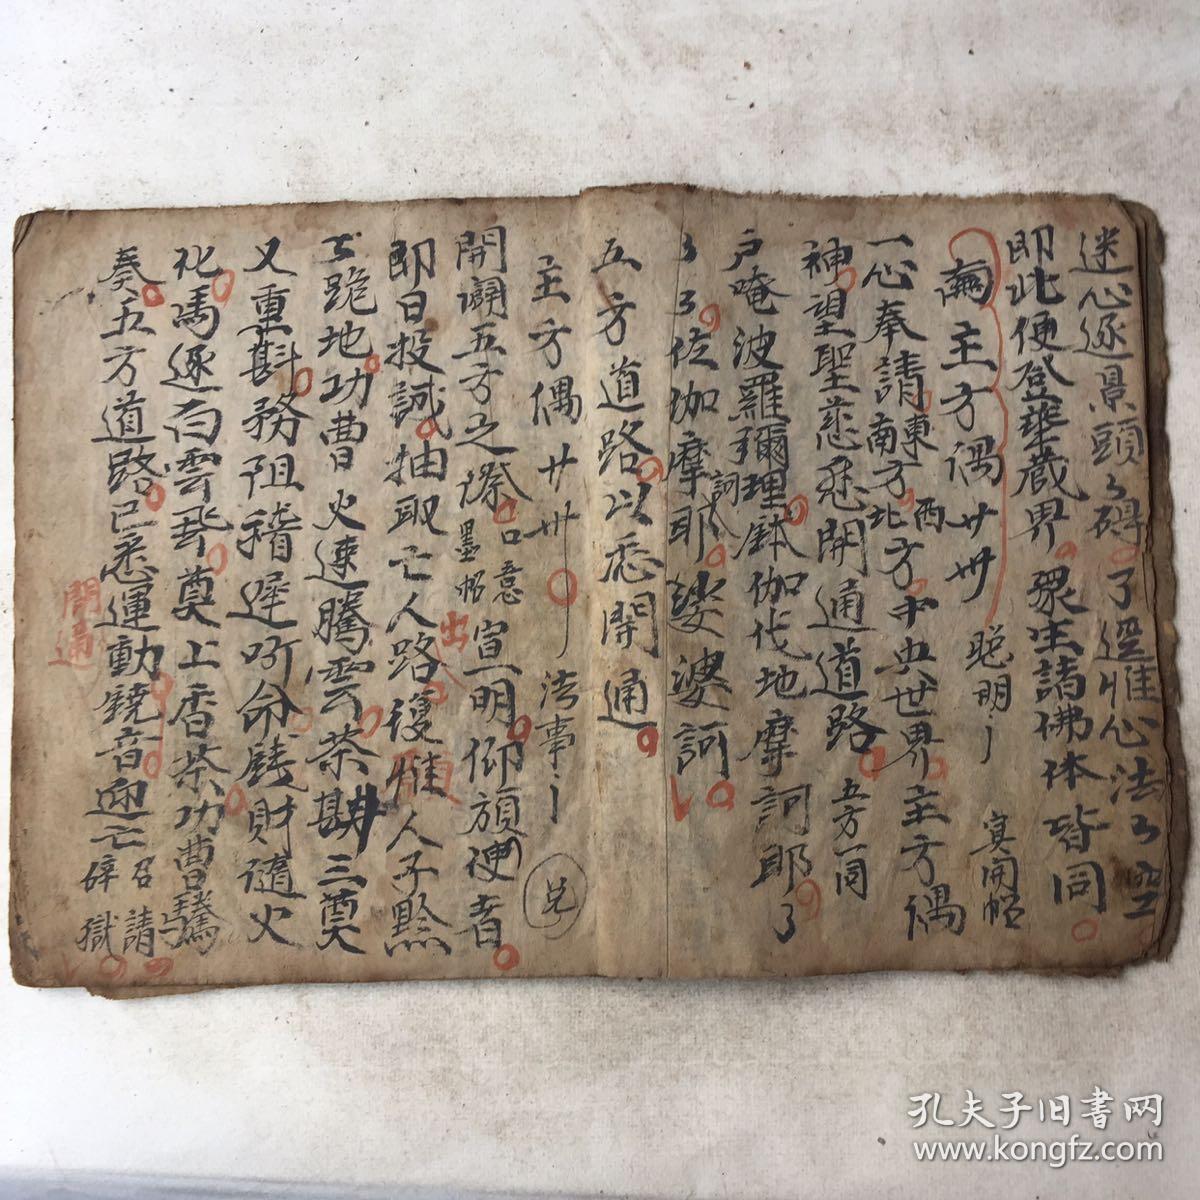 迷心逐景頭々碍了逕惟心法々空
即此便登華藏界眾生諸佛体皆同
主方偈廿卅
聡明
冥開帖
一心奉請東南方西北方中央世界主方偈
神望聖慈悲開通道路五方一同
戶唵波羅彌理鉢伽伐地摩訶耶了
了了佐伽摩耶娑婆訶
五方道路以悉開通
主方偈廿卅
法事
開闢五方之際口意宣明仰願使者
即日投誠抽取亡人路
人子黔
跪地功曹火速騰雲茶斟三奠
又重斟務阻稽遲吩命錢財隨火
化馬逐白雲飛奠上香茶功曹騎馬
奏五方道路已悉運動鐃音迎亡
召請
辟獄
開通
孔夫子旧书网
www.kongfz.com